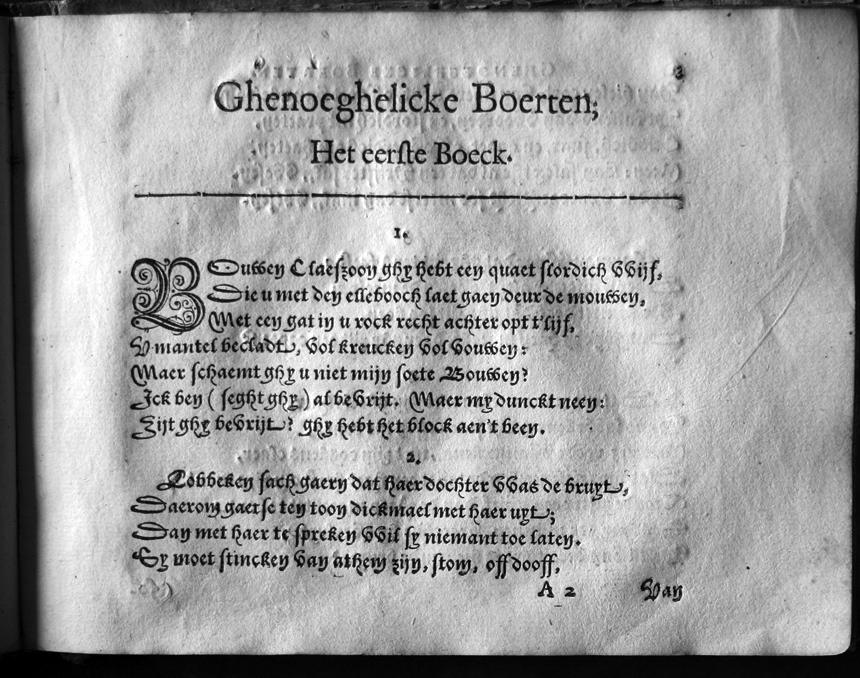 3
Ghenoeghelicke Boerten,
Het eerste Boeck.
1.
BOuwen Claeszoon ghy hebt een quaet slordich wijf,
Die u met den elleboogh laet gaen deur de mouwen,
Met een gat in u rock recht achter opt t'lijf,
V mantel becladt, vol kreucken vol vouwen:
Maer schaemt ghy u niet mijn soete Bouwen?
Ick ben (seght ghy) al bevrijt. Maer my dunckt neen:
Zijt ghy bevrijt? ghy hebt het block aen't been.
2.
Lobbeken sach gaern dat haer dochter was de bruyt,
Daerom gaet se ten toon dickmael met haer uyt;
Dan met haer te spreken wil sy niemant toe laten.
Sy moet stincken van athem zijn, stom, off dooff,
A 2
Van